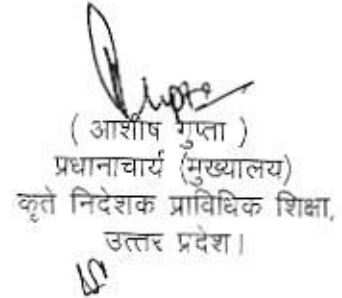 ( आशीष गुप्ता )
प्रधानाचार्य (मुख्यालय)
कृते निदेशक प्राविधिक शिक्षा,
उत्तर प्रदेश।